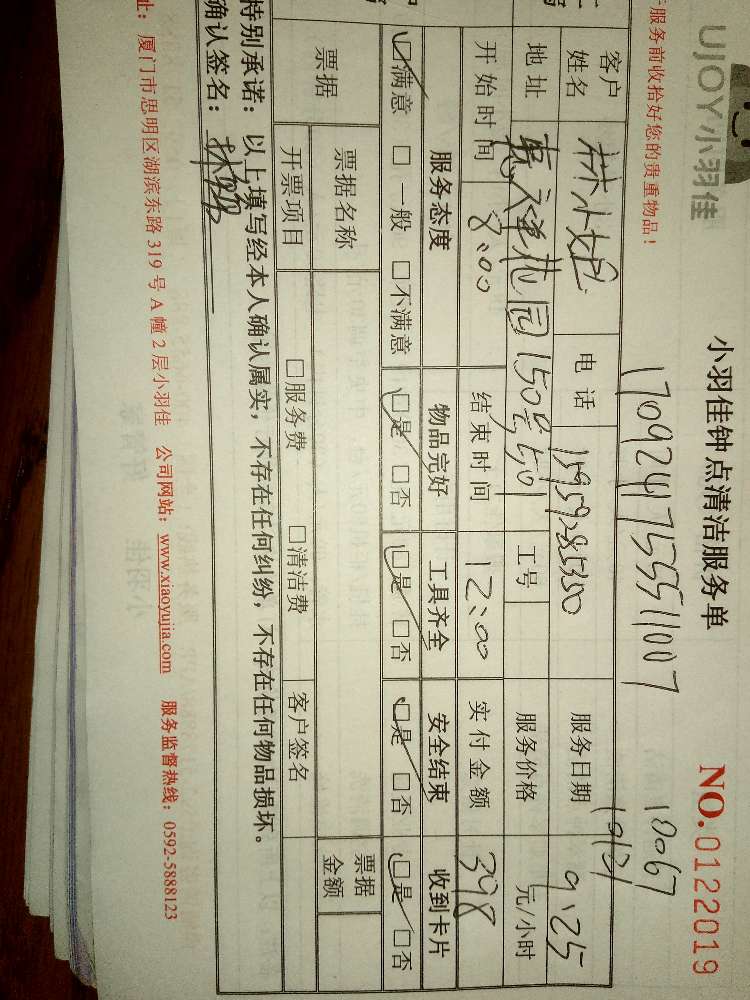 UJOY小羽佳
小羽佳钟点清洁服务单
NO.0122019
服务前收拾好您的贵重物品！
170924175551007
18067
客户姓名 林小姐 电话 15959285300 服务日期 9.25
地址 花园150号501 工号 服务价格 元/小时
开始时间 8:00 结束时间 12:00 实付金额 398
服务态度 物品完好 工具齐全 安全结束 收到卡片
☑满意 □一般 □不满意 ☑是 □否 ☑是 □否 ☑是 □否 ☑是 □否
票据 票据名称 票据金额
开票项目 □服务费 □清洁费 客户签名
特别承诺：以上填写经本人确认属实，不存在任何纠纷，不存在任何物品损坏。
确认签名：
址：厦门市思明区湖滨东路 319 号 A 幢 2 层小羽佳 公司网站：www.xiaoyujia.com 服务监督热线：0592-5888123